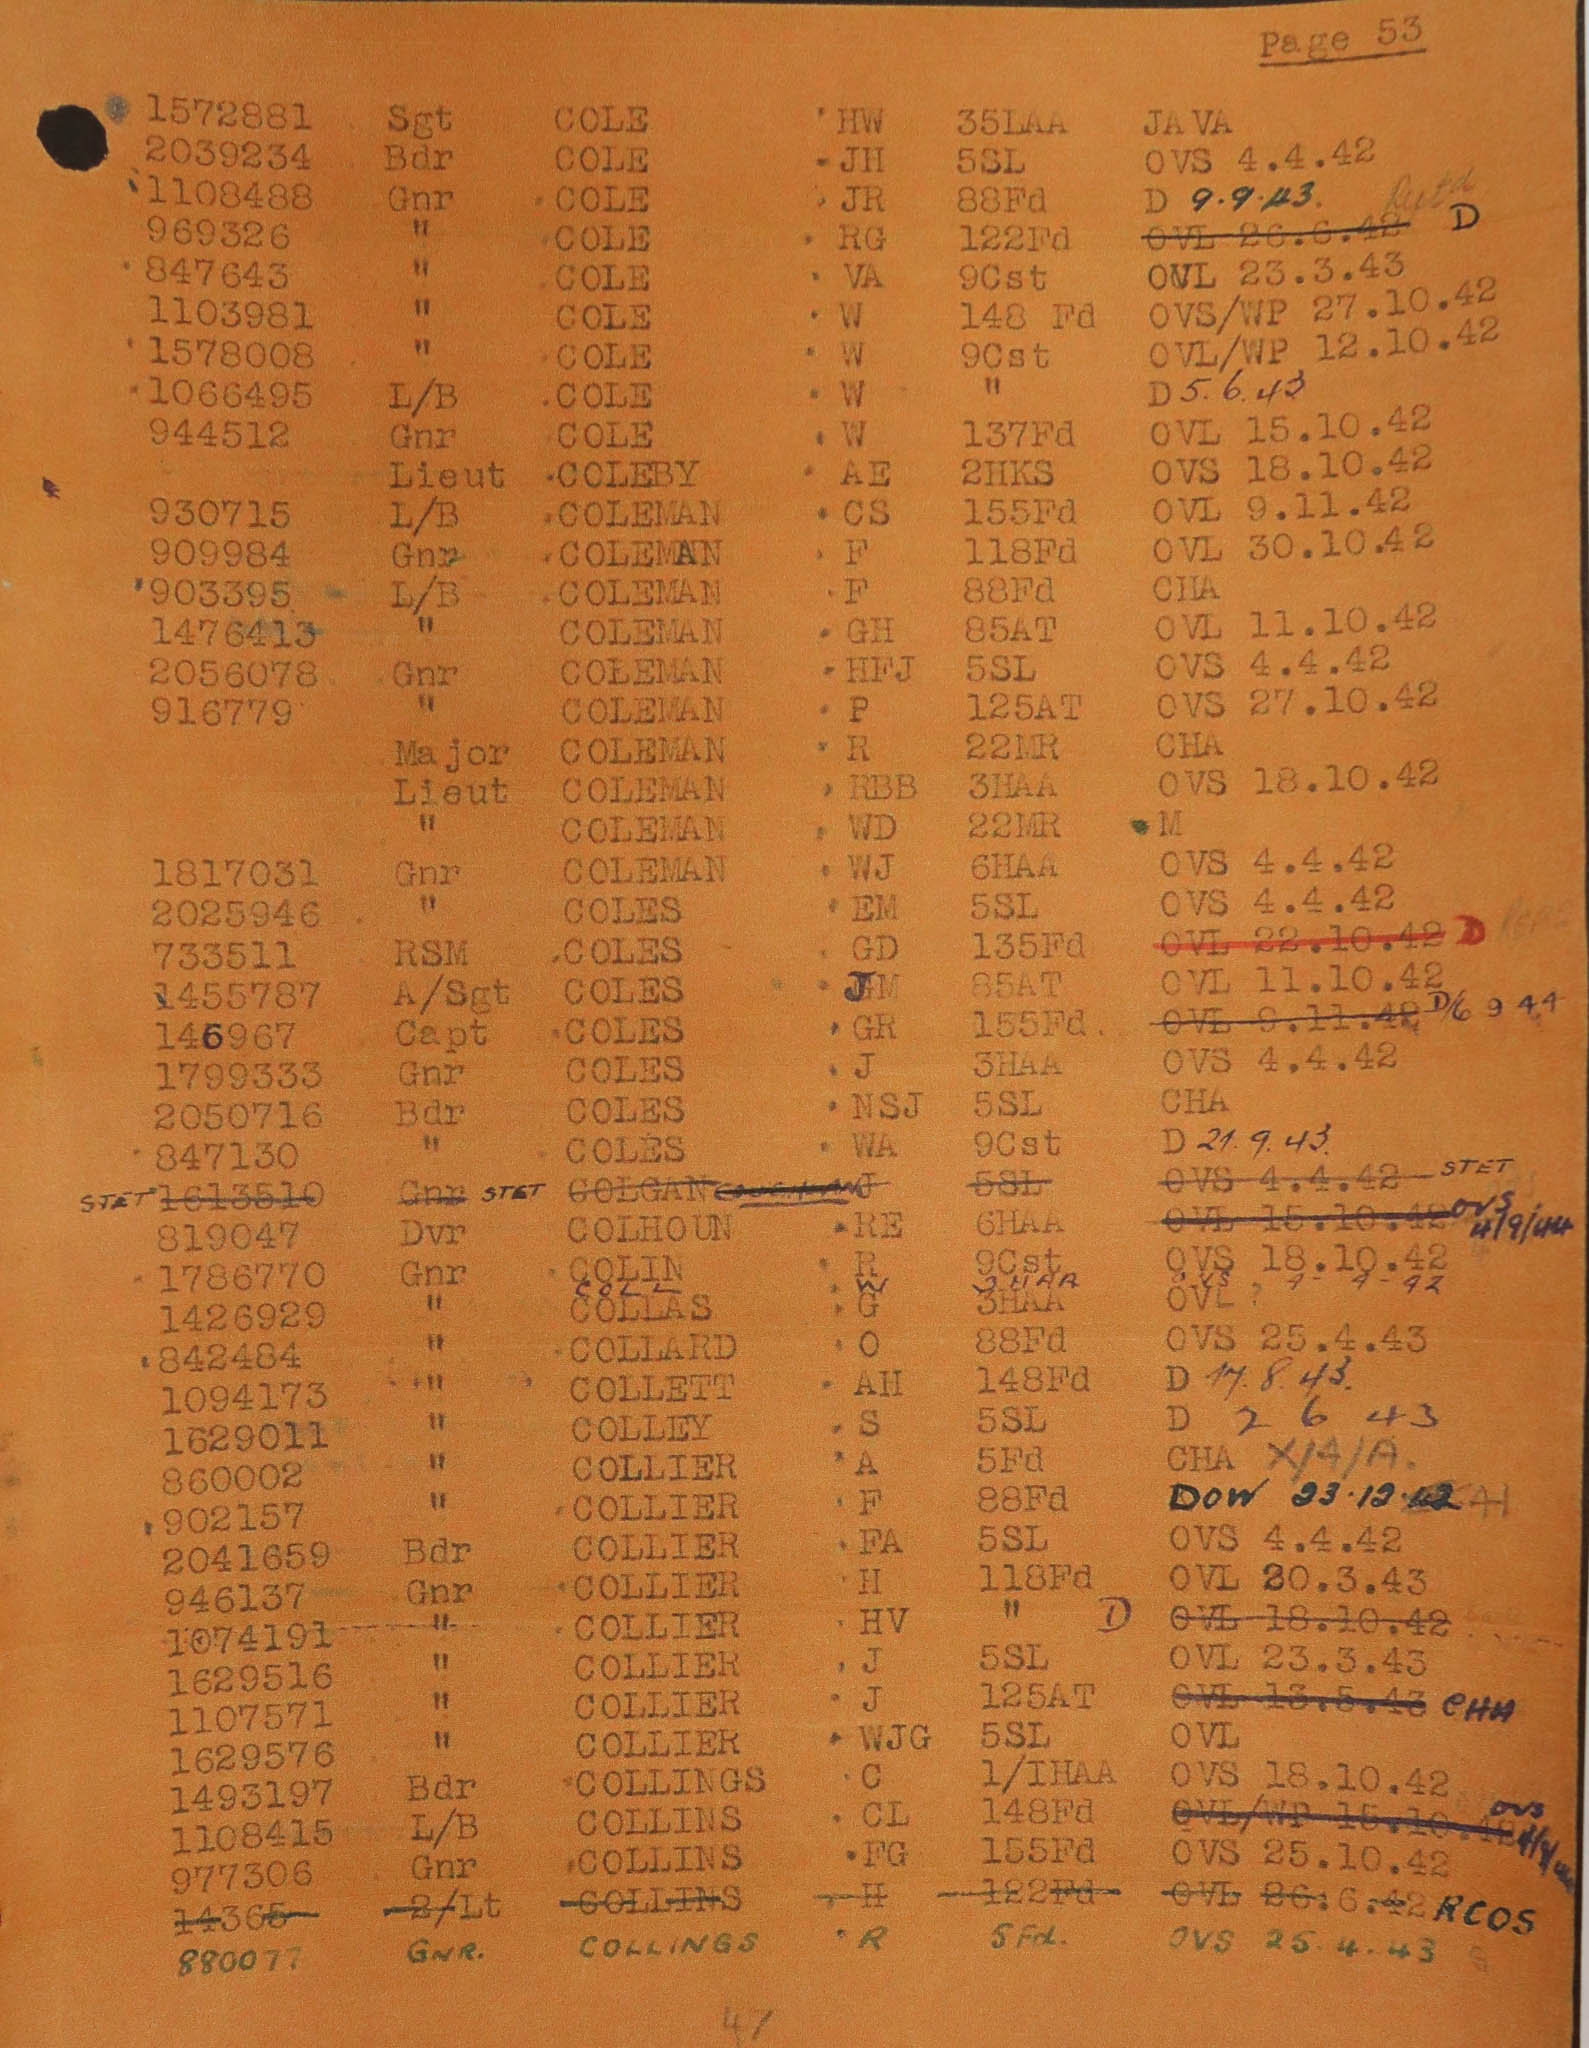 Page 53
1572881 Sgt COLE HW 35LAA JAVA
2039234 Bdr COLE JH 5SL OVS 4.4.42
1108488 Gnr COLE JR 88Fd D 9.9.43.
969326 " COLE RG 122Fd OVL 26.6.42 D
847643 " COLE VA 9Cst OVL 23.3.43
1103981 " COLE W 148 Fd OVS/WP 27.10.42
1578008 " COLE W 9Cst OVL/WP 12.10.42
1066495 L/B COLE W " D 5.6.43
944512 Gnr COLE W 137Fd OVL 15.10.42
Lieut COLEBY AE 2HKS OVS 18.10.42
930715 L/B COLEMAN CS 155Fd OVL 9.11.42
909984 Gnr COLEMAN F 118Fd OVL 30.10.42
903395 L/B COLEMAN F 88Fd CHA
1476413 " COLEMAN GH 85AT OVL 11.10.42
2056078 Gnr COLEMAN HFJ 5SL OVS 4.4.42
916779 " COLEMAN P 125AT OVS 27.10.42
Major COLEMAN R 22MR CHA
Lieut COLEMAN RBB 3HAA OVS 18.10.42
" COLEMAN WD 22MR M
1817031 Gnr COLEMAN WJ 6HAA OVS 4.4.42
2025946 " COLES EM 5SL OVS 4.4.42
733511 RSM COLES GD 135Fd OVL 22.10.42 D
1455787 A/Sgt COLES JM 85AT OVL 11.10.42
146967 Capt COLES GR 155Fd. OVL 9.11.42 D/6 9 44
1799333 Gnr COLES J 3HAA OVS 4.4.42
2050716 Bdr COLES NSJ 5SL CHA
847130 " COLES WA 9Cst D 21.9.43.
STET 1613510 Gnr STET COLGAN J 5SL OVS 4.4.42 STET
819047 Dvr COLHOUN RE 6HAA OVL 15.10.42 OVS 4/9/44
1786770 Gnr COLIN R 9Cst OVS 18.10.42
COLL W 3HAA OVS
1426929 " COLLAS G 3HAA OVL ?
842484 " COLLARD O 88Fd OVS 25.4.43
1094173 " COLLETT AH 148Fd D 17.8.43.
1629011 " COLLEY S 5SL D 2 6 43
860002 " COLLIER A 5Fd CHA X/4/A.
902157 " COLLIER F 88Fd DOW 23.12.42
2041659 Bdr COLLIER FA 5SL OVS 4.4.42
946137 Gnr COLLIER H 118Fd OVL 20.3.43
1074191 " COLLIER HV " D OVL 18.10.42
1629516 " COLLIER J 5SL OVL 23.3.43
1107571 " COLLIER J 125AT OVL 13.5.43 CHA
1629576 " COLLIER WJG 5SL OVL
1493197 Bdr COLLINGS C 1/IHAA OVS 18.10.42
1108415 L/B COLLINS CL 148Fd OVL/WP 15.10.42 OVS
977306 Gnr COLLINS FG 155Fd OVS 25.10.42
14365 2/Lt COLLINS H 122Fd OVL 26.6.42 RCOS
880077 GNR. COLLINGS R 5Fd. OVS 25.4.43
47